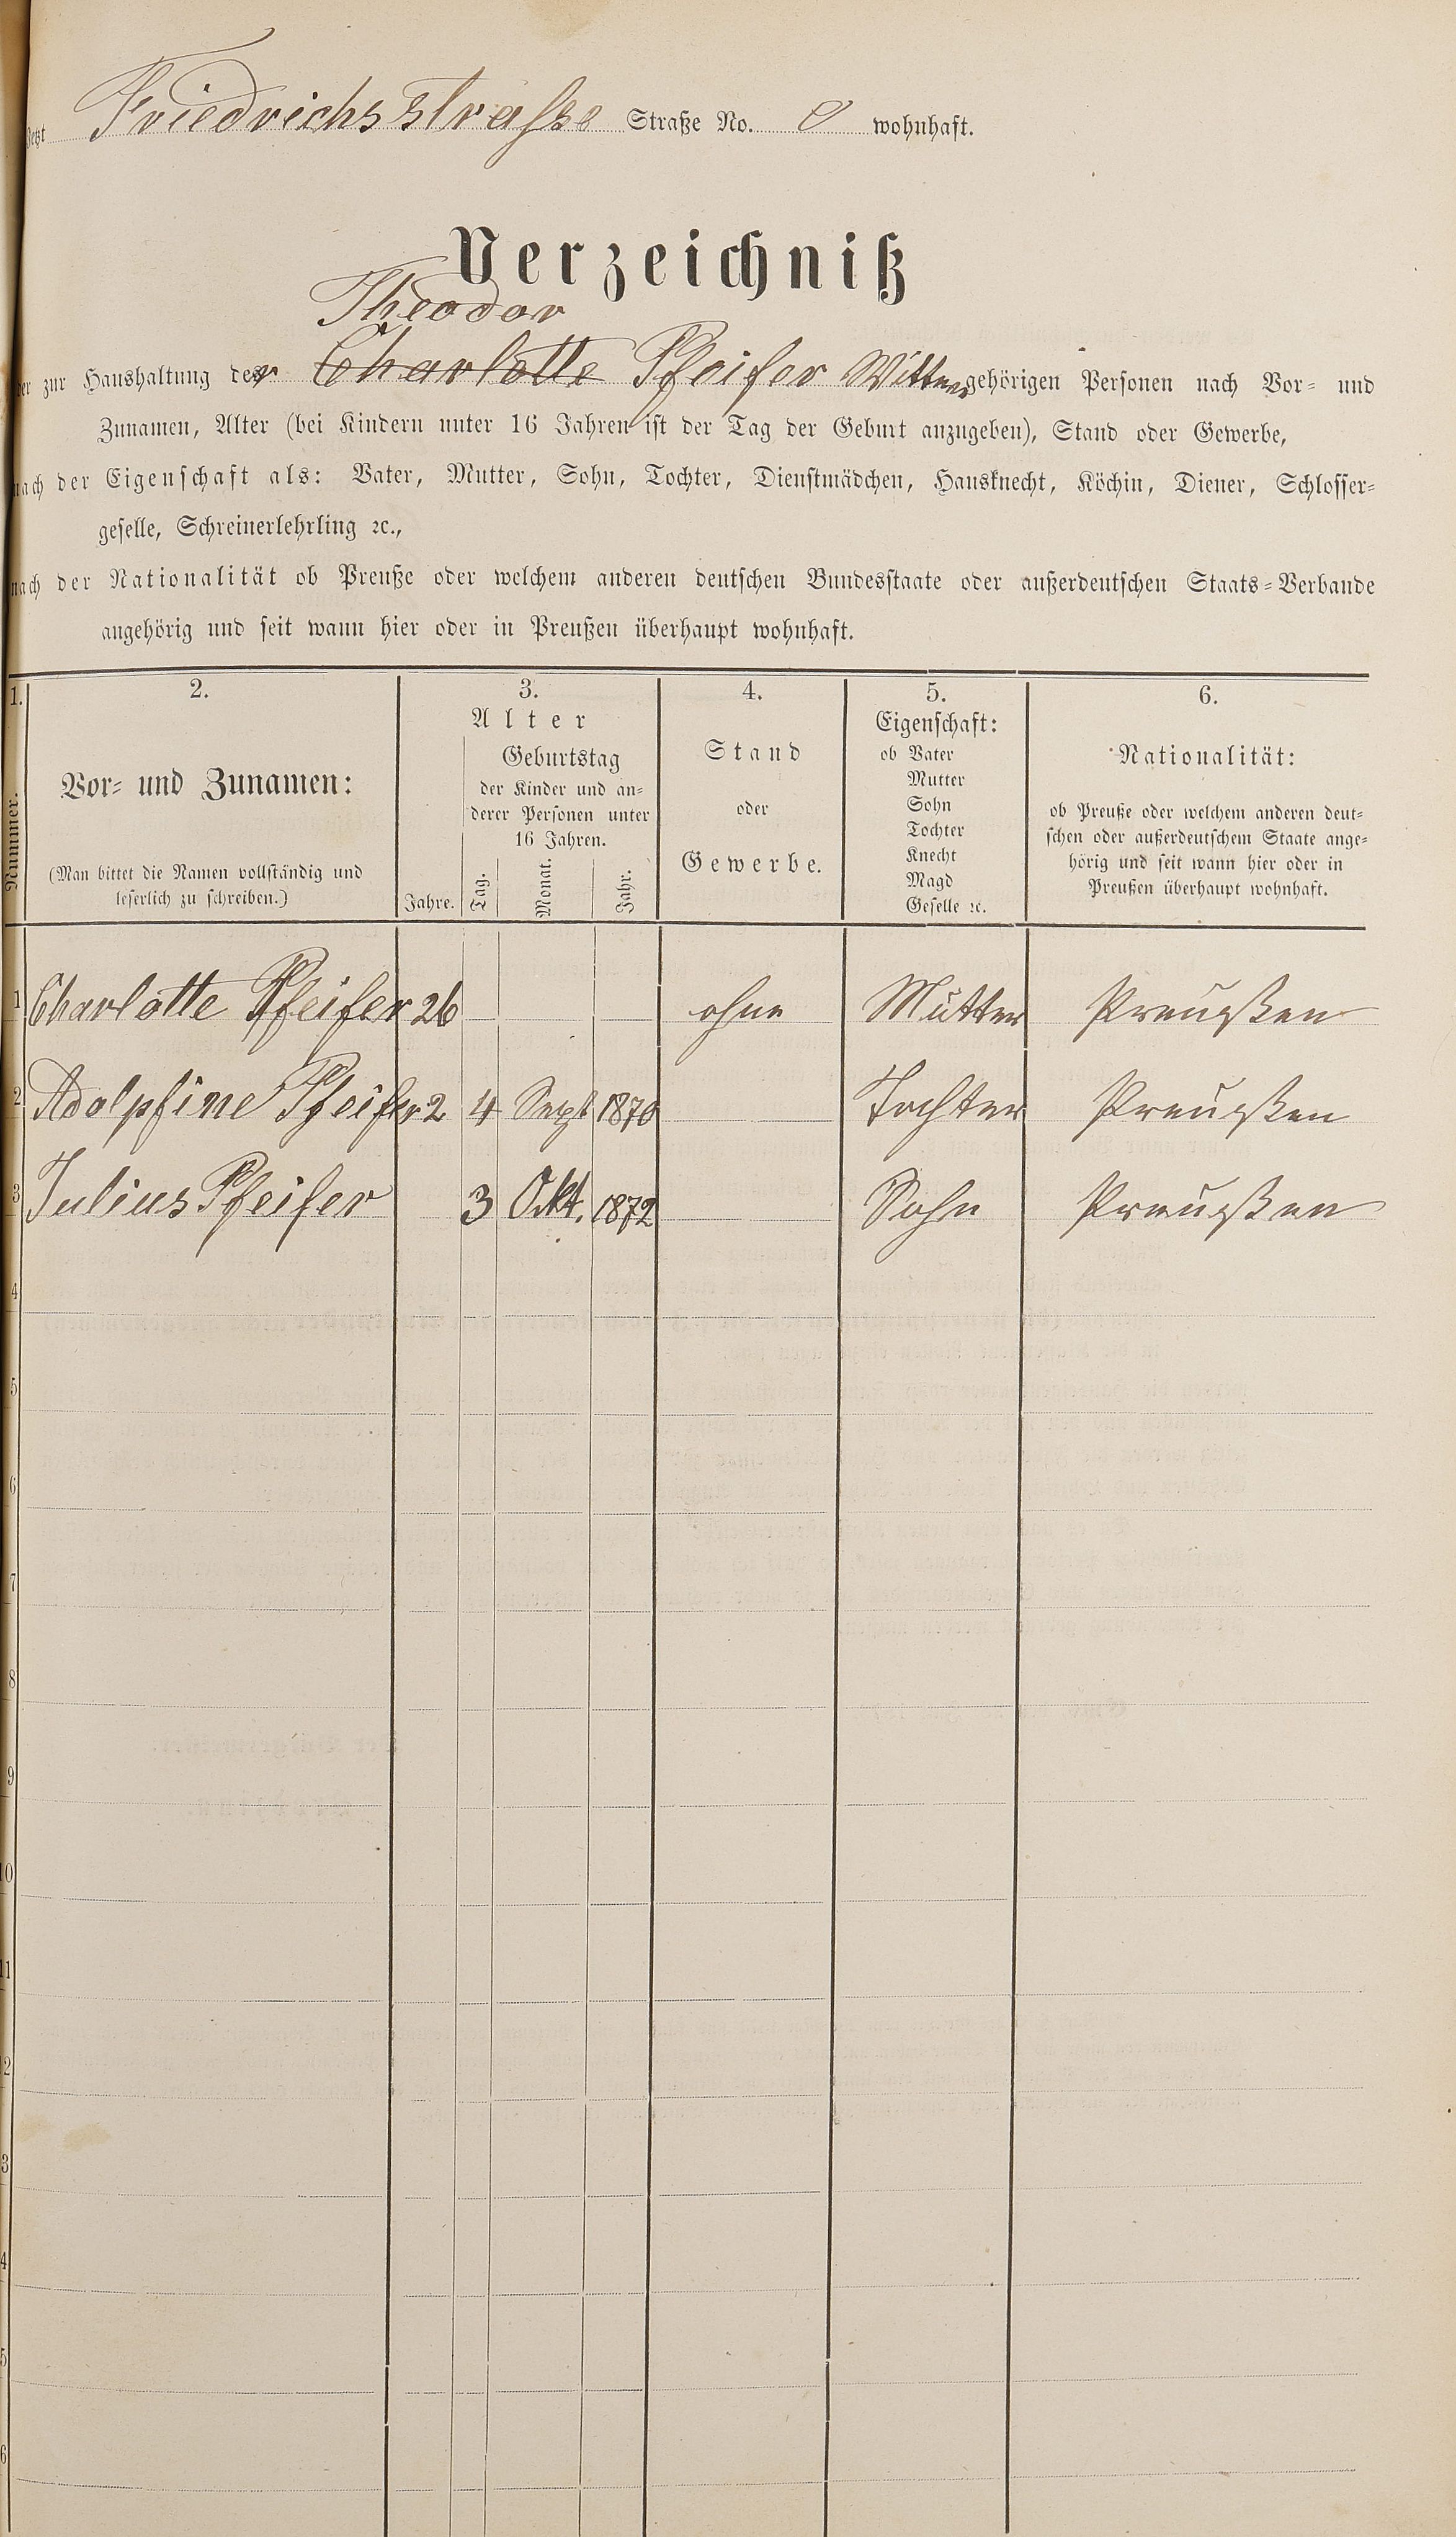 Jetzt Friedrichsstrasse Straße No. 0 wohnhaft.
Verzeichniß
Theodor
der zur Haushaltung der Charlotte Pfeifer Wittwe gehörigen Personen nach Vor- und
Zunamen, Alter (bei Kindern unter 16 Jahren ist der Tag der Geburt anzugeben), Stand oder Gewerbe,
nach der Eigenschaft als: Vater, Mutter, Sohn, Tochter, Dienstmädchen, Hausknecht, Köchin, Diener, Schlosser-
geselle, Schreinerlehrling ꝛc.,
nach der Nationalität ob Preuße oder welchem anderen deutschen Bundesstaate oder außerdeutschen Staats-Verbande
angehörig und seit wann hier oder in Preußen überhaupt wohnhaft.
1. 2. 3. 4. 5. 6.
Nummer.
Vor- und Zunamen:
(Man bittet die Namen vollständig und
leserlich zu schreiben.)
Alter
Jahre.
Geburtstag
der Kinder und an-
derer Personen unter
16 Jahren.
Tag. Monat. Jahr.
Stand
oder
Gewerbe.
Eigenschaft:
ob Vater
Mutter
Sohn
Tochter
Knecht
Magd
Geselle ꝛc.
Nationalität:
ob Preuße oder welchem anderen deut-
schen oder außerdeutschem Staate ange-
hörig und seit wann hier oder in
Preußen überhaupt wohnhaft.
1 Charlotte Pfeifer 26 ohne Mutter Preußen
2 Adolphine Pfeifer 2 4 Sept 1870 Tochter Preußen
3 Julius Pfeifer 3 Okt. 1872 Sohn Preußen
4
5
6
7
8
9
10
11
12
3
4
5
6